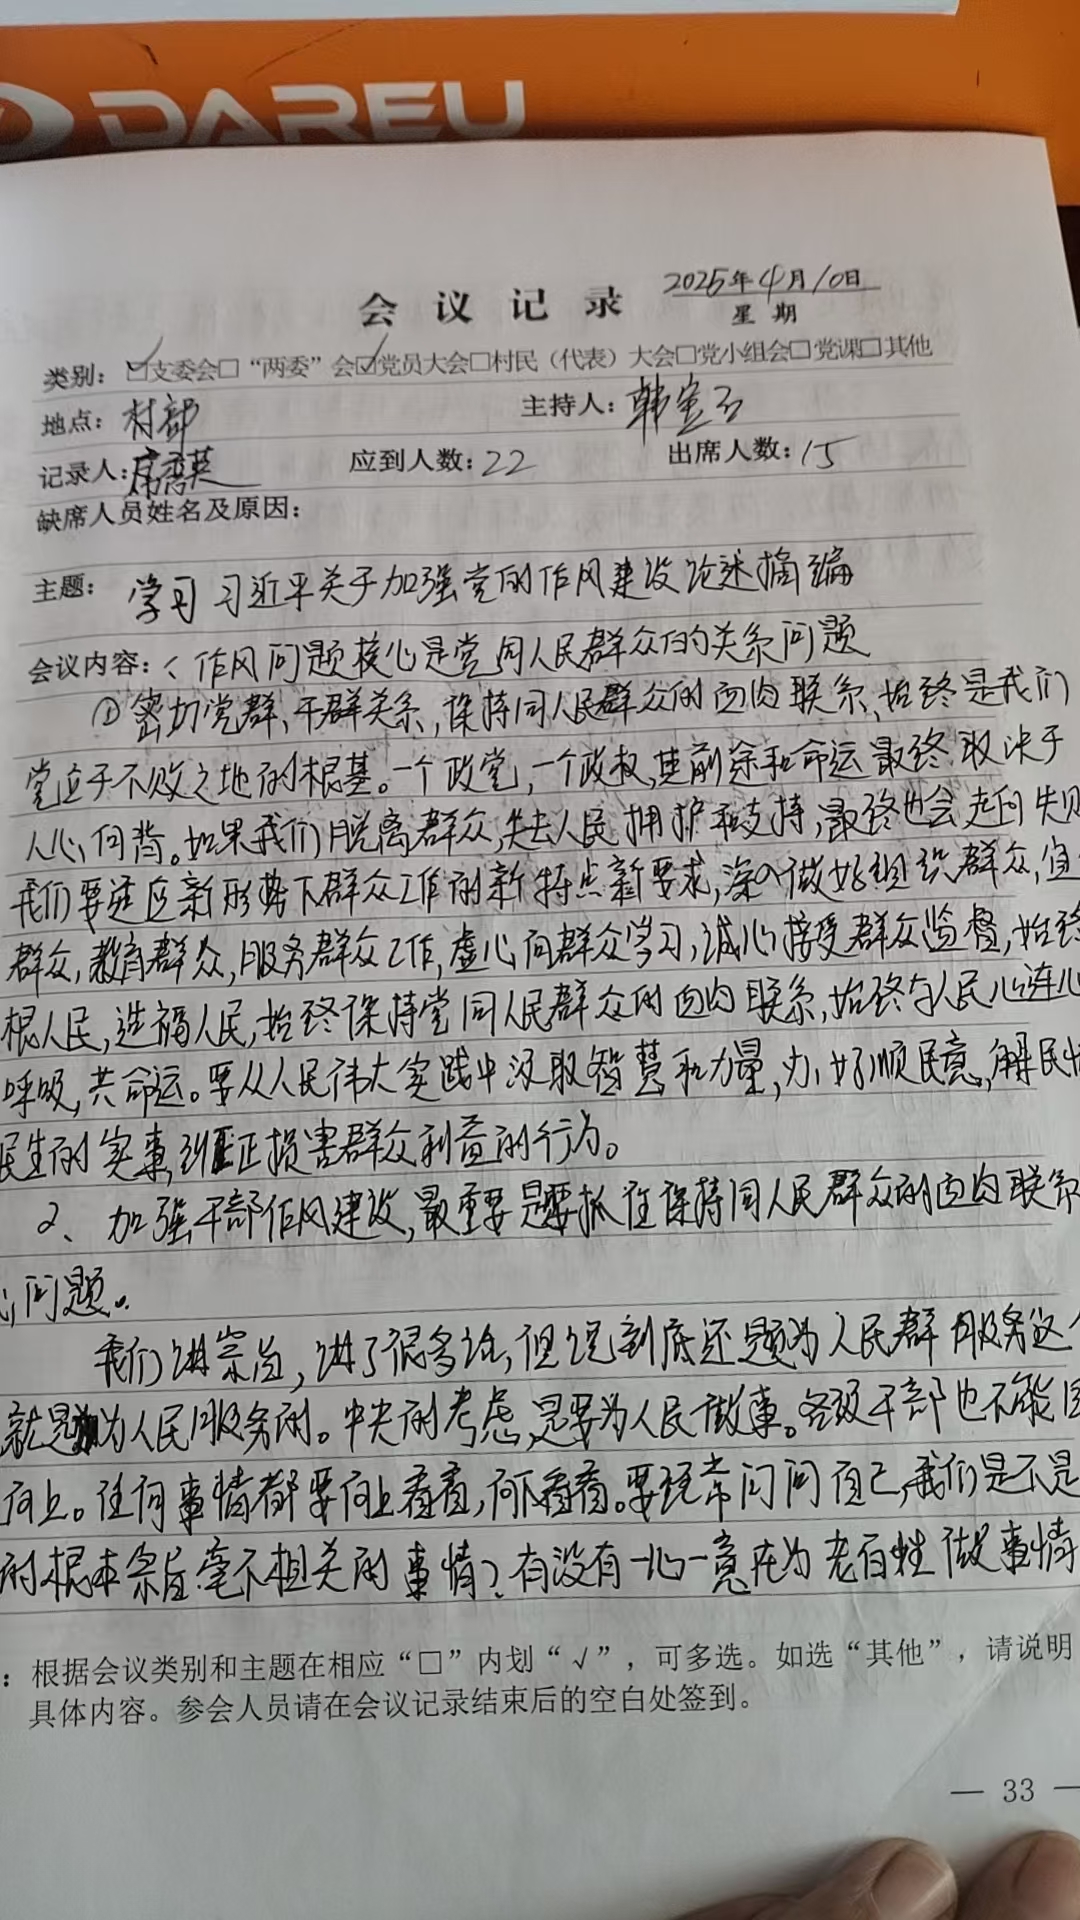 DAREU
会议记录
2025年4月10日
星期
类别：☑支委会□“两委”会☑党员大会□村民（代表）大会□党小组会□党课□其他
地点：村部 主持人：韩宝玉
记录人： 应到人数：22 出席人数：15
缺席人员姓名及原因：
主题：学习习近平关于加强党的作风建设论述摘编
会议内容：1、作风问题核心是党同人民群众的关系问题
①密切党群、干群关系，保持同人民群众的血肉联系，始终是我们
党立于不败之地的根基。一个政党，一个政权，其前途和命运最终取决于
人心向背。如果我们脱离群众，失去人民拥护和支持，最终也会走向失败
我们要适应新形势下群众工作的新特点新要求，深入做好组织群众，宣
群众，教育群众，服务群众工作，虚心向群众学习，诚心接受群众监督，始终
根人民，造福人民，始终保持党同人民群众的血肉联系，始终与人民心连心
呼吸，共命运。要从人民伟大实践中汲取智慧和力量，办好顺民意，解民忧
民生的实事，纠正损害群众利益的行为。
2、加强干部作风建设，最重要是要抓住保持同人民群众的血肉联系
心问题。
我们讲宗旨，讲了很多话，但说到底还是为人民群服务这个
就是为人民服务的。中央的考虑，是要为人民做事。各级干部也不能
向上。任何事情都要向上看看，向下看看。要经常问问自己，我们是不是
的根本宗旨毫不相关的事情？有没有一心一意在为老百姓做事情
：根据会议类别和主题在相应“□”内划“√”，可多选。如选“其他”，请说明
具体内容。参会人员请在会议记录结束后的空白处签到。
— 33 —